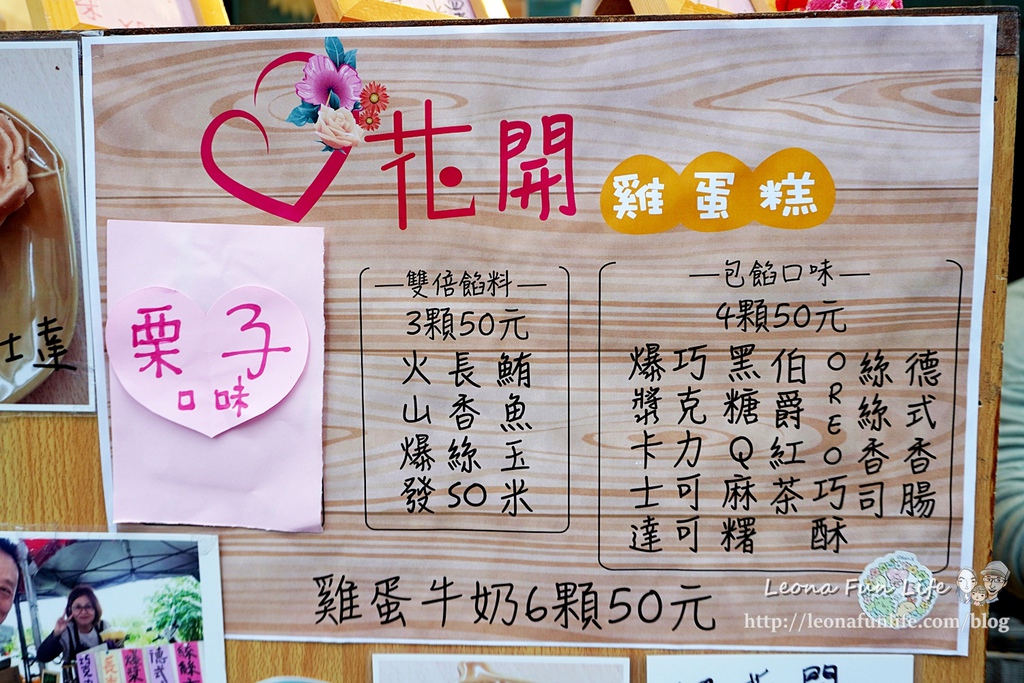 花開
雞蛋糕
栗子
口味
雙倍餡料
3顆50元
鮪魚玉米
長香絲SO
火山爆發
包餡口味
4顆50元
德式香腸
絲絲香司
OREO巧酥
伯爵紅茶
黑糖Q麻糬
巧克力可可
爆漿卡士達
雞蛋牛奶6顆50元
士達
Leona Fun Life
http://leonafunlife.com/blog